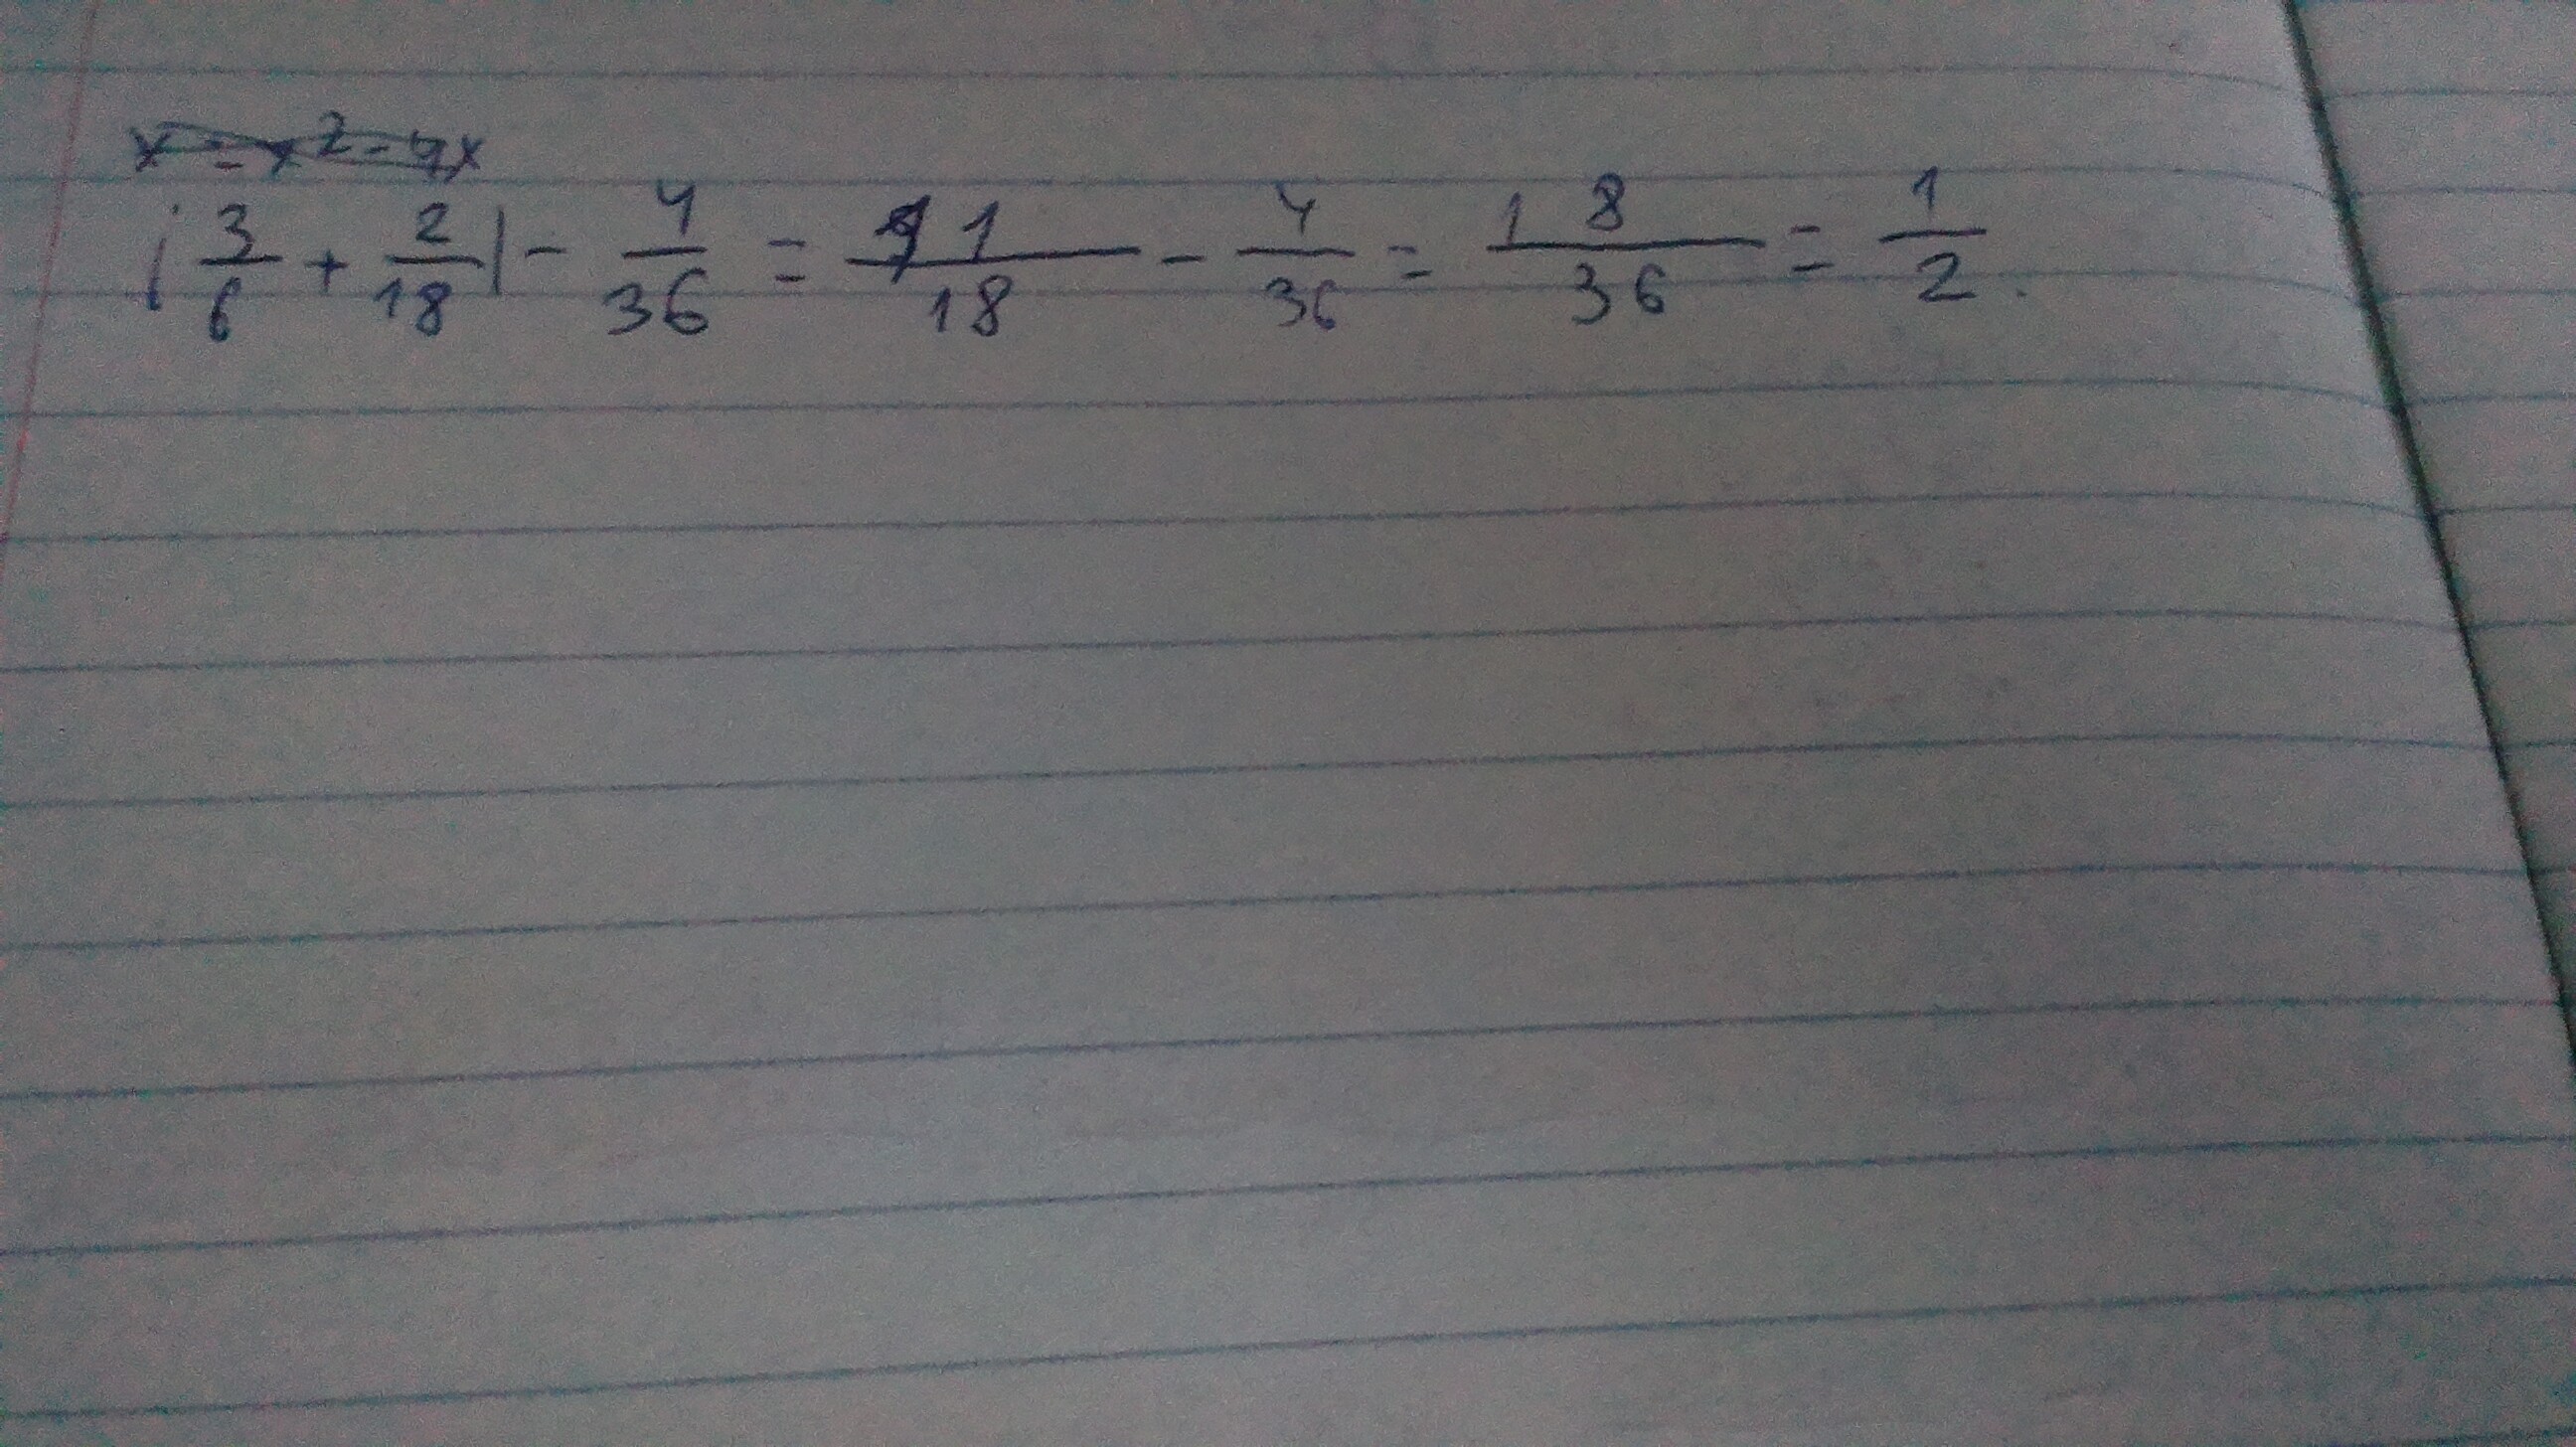 x = x² - 4x
|3/6 + 2/18| - 4/36 = 11/18 - 4/36 = 18/36 = 1/2.